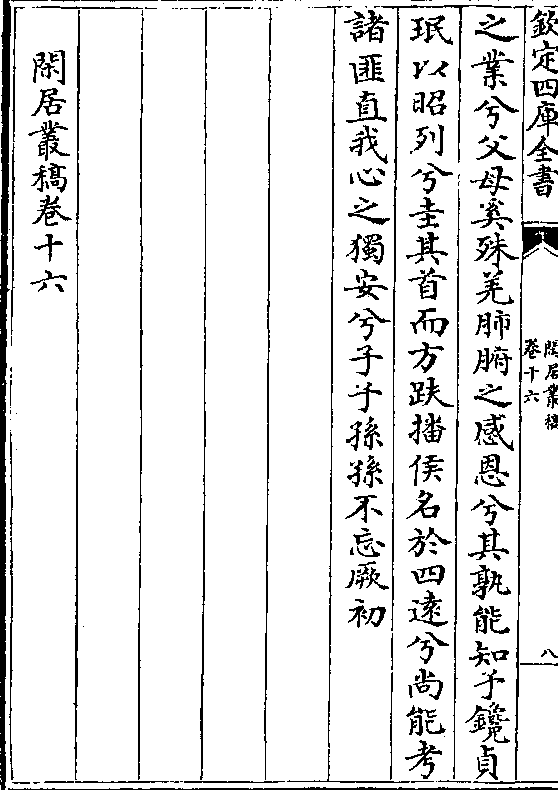 欽定四庫全書
閑居叢稿
卷十六
八
之業兮父母奚殊羌肺腑之感恩兮其孰能知予鑱貞
珉以昭列兮圭其首而方趺播侯名於四遠兮尚能考
諸匪直我心之獨安兮子子孫孫不忘厥初
閑居叢稿卷十六